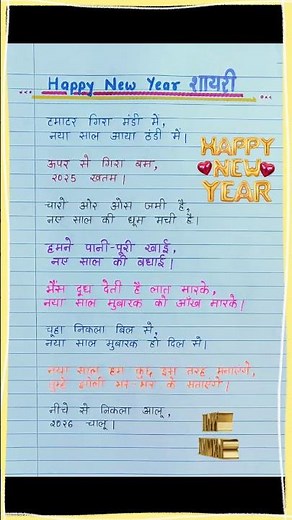 Happy New Year शायरी
टमाटर गिरा मंडी में,
नया साल आया ठंडी में।
HAPPY
NEW
YEAR
ऊपर से गिरा बम,
2025 खतम।
चारो ओर ओस जमी है,
नए साल की धूम मची है।
हमने पानी-पूरी खाई,
नए साल की बधाई।
भैंस दूध देती है लात मारके,
नया साल मुबारक को आँख मारके।
चूहा निकला बिल से,
नया साल मुबारक हो दिल से।
नया साल हम को, इस तरह मनाएंगे,
तुम्हे झोली भर-भर के सताएंगे।
नीचे से निकला आलू,
2026 चालू।